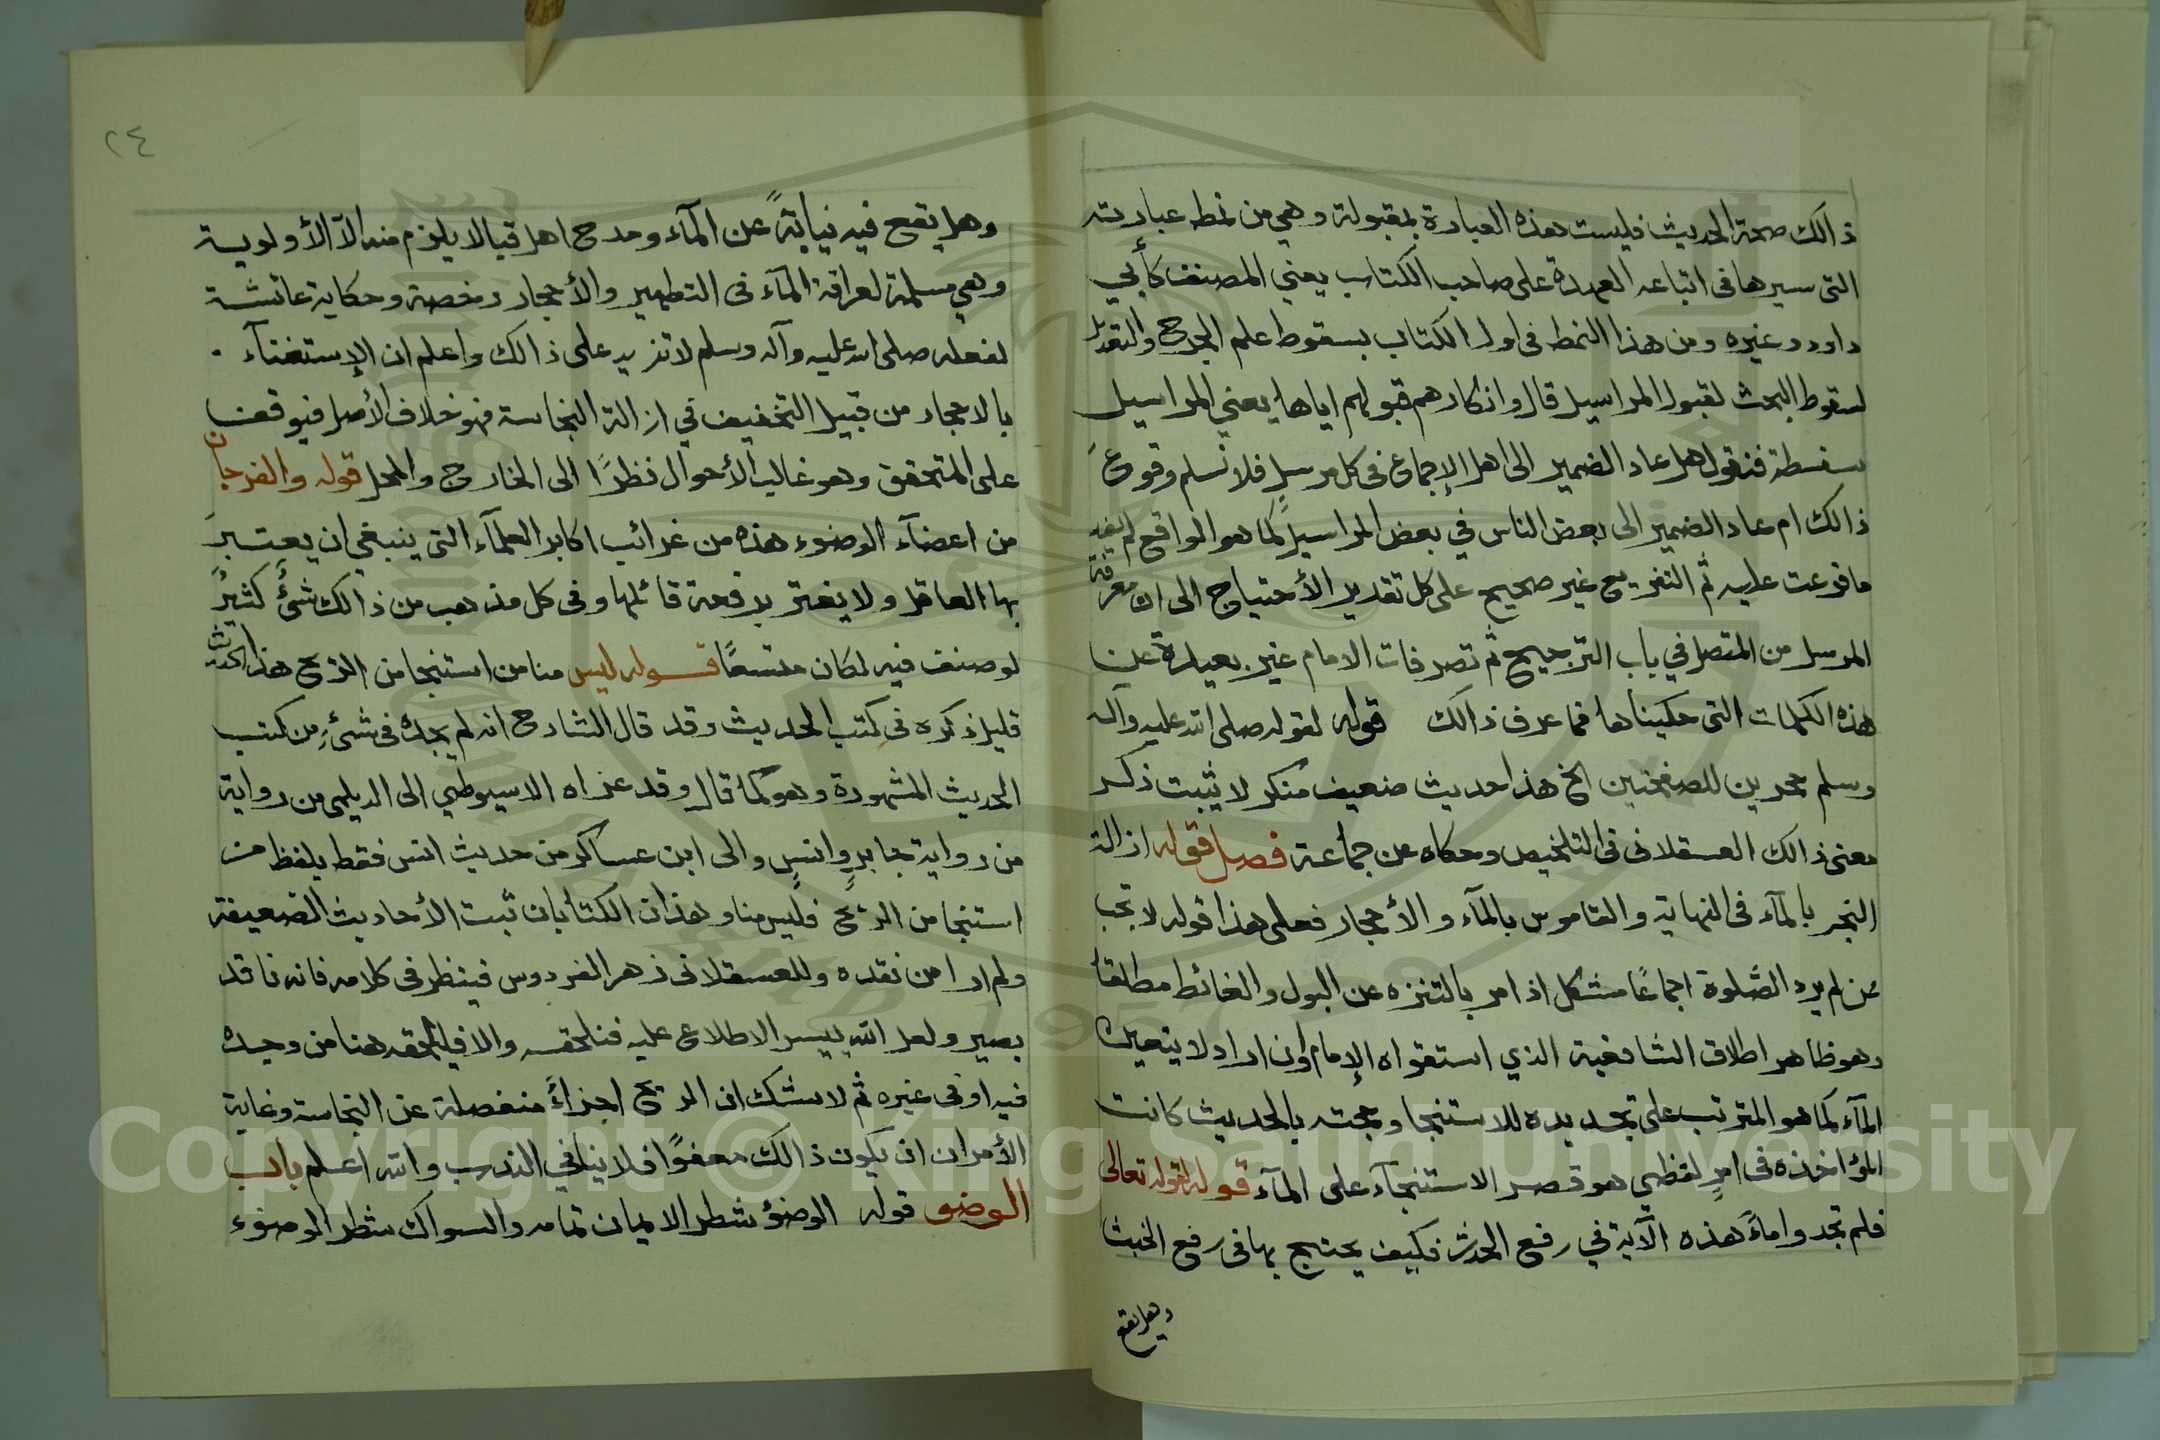 ذالك صحة الحديث فليست هذه العبارة بمقبولة وهي من نمط عبارته
التي سيرها في اتباعه العهدة على صاحب الكتاب يعني المصنف كأبي
داود وغيره ومن هذا النمط في اول الكتاب بسقوط علم الجرح والتعديل
لسقوط البحث لقبول المراسيل قال وانكارهم قبولهم اياها يعني المراسيل
سفسطة فنقول هل عاد الضمير الى اهل الإجماع في كل مرسل فلا نسلم وقوع
ذالك ام عاد الضمير الى بعض الناس في بعض المراسيل كما هو الواقع لم يفد
ما فرعت عليه ثم التفريع غير صحيح على كل تقدير الأحتياج الى معرفة
المرسل من المتصل في باب الترجيح ثم تصرفات الامام غير بعيدة عن
هذه الكلمات التي حكيناها فما عرف ذالك قوله لقوله صلى الله عليه وآله
وسلم حجرين للصفحتين الخ هذا حديث ضعيف منكر لا يثبت ذكر
معنى ذالك العسقلاني في التلخيص وحكاه عن جماعة فصل قوله ازالة
النجو بالمآء في النهاية والقاموس بالمآء والأحجار فعلى هذا قوله لا تجب
عن لم يرد الصلوة اجماعًا مشكل اذ امر بالتنزه عن البول والغائط مطلقا
وهو ظاهر اطلاق الشافعية الذي استقواه الإمام وان اراد لا يتعين
المآء كما هو المترتب على تحديده للاستنجا وحجته بالحديث كانت
المؤاخذة في امرٍ لفظي هو قصر الاستنجآء على المآء قوله لقوله تعالى
فلم تجدوا ماءً هذه الآية في رفع الحدث فكيف يحتج بها في رفع الخبث
وهل يقع
٢٤
وهل يقع فيه نيابةً عن المآء ومدح اهل قبا لا يلزم منه الا الأولوية
وهي مسلمة لعراقة المآء في التطهير والأحجار رخصة وحكاية عائشة
لفعله صلى الله عليه وآله وسلم لا تزيد على ذالك واعلم ان الإستغنآء
بالاحجار من قبيل التخفيف في ازالة النجاسة فهو خلاف الأصل فيوقف
على المتحقق وهو غالب الأحوال نظرًا الى الخارج والمحل قوله والفرجان
من اعضآء الوضوء هذه من غرائب اكابر العلمآء التي ينبغي ان يعتبر
بها العاقل ولا يغتر برفعة قائلها وفي كل مذهب من ذالك شئ كثير
لو صنف فيه لكان متسعًا قوله ليس منا من استنجا من الريح هذا الحديث
قليل ذكره في كتب الحديث وقد قال الشارح انه لم يجده في شئ من كتب
الحديث المشهورة وهو كما قال وقد عزاه الاسيوطي الى الديلمي من رواية
من رواية جابر وانس والى ابن عساكر من حديث انس فقط بلفظ من
استنجا من الريح فليس منا وهذان الكتابان ثبت الأحاديث الضعيفة
ولم ارا من نقده وللعسقلاني زهر الفردوس فينظر في كلامه فانه ناقد
بصير ولعل الله ييسر الاطلاع عليه فنلحقه والا فيلحقه هنا من وجده
فيه او في غيره ثم لا شك ان الريح اجزاءً منفصلة عن النجاسة وغاية
الأمر ان ان يكون ذالك معفوًا فلا ينافي الندب والله اعلم باب
الوضو قوله الوضؤ شطر الايمان تمامه والسواك شطر الوضوء
Copyright © King Saud University